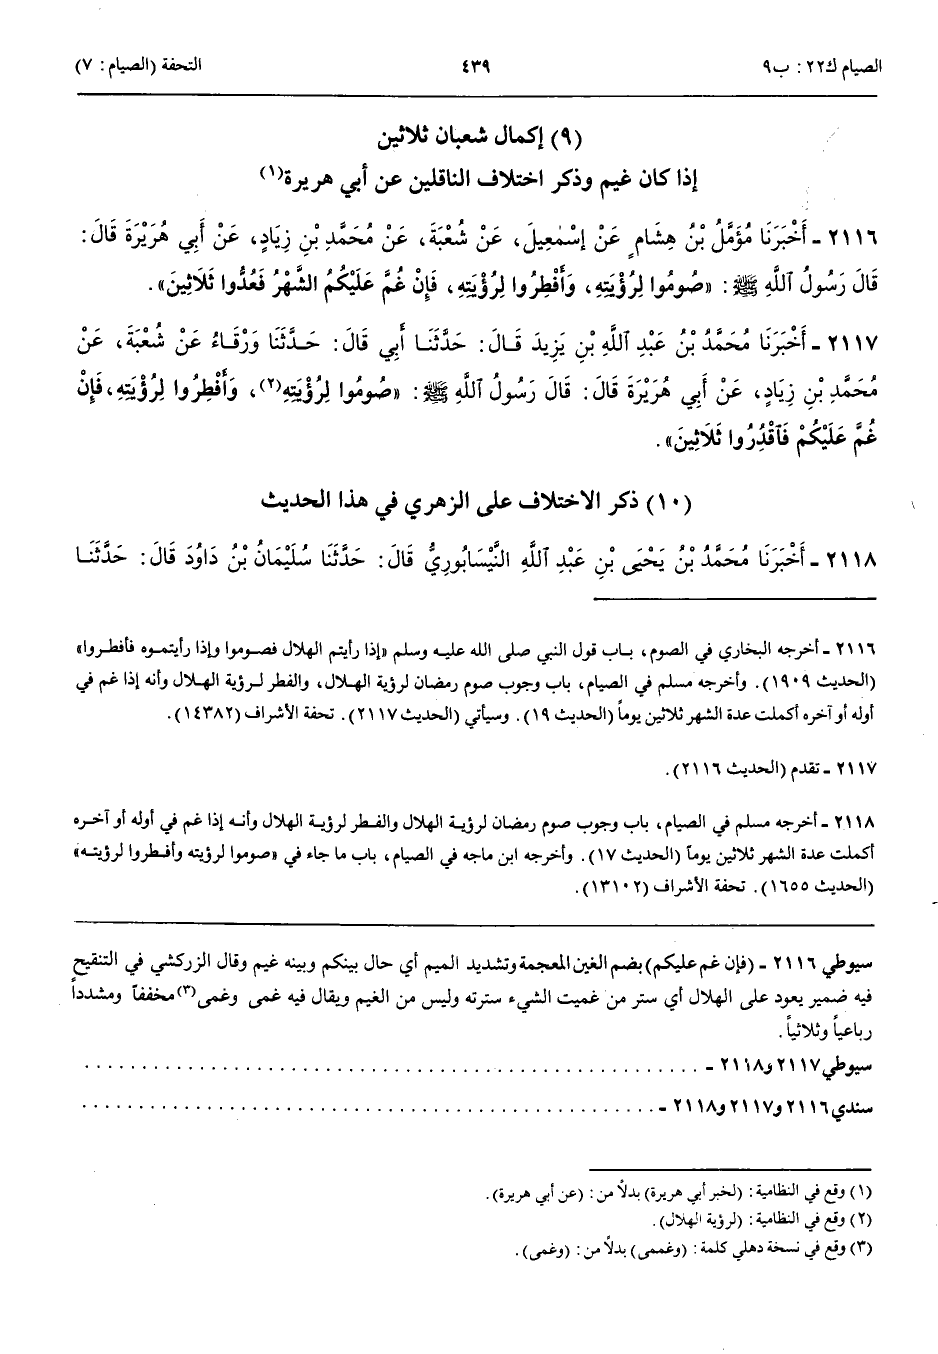 الصيام ك٢٢: ب٩ ٤٣٩ التحفة (الصيام: ٧)
(٩) إكمال شعبان ثلاثين
إذا كان غيم وذكر اختلاف الناقلين عن أبي هريرة(١)
٢١١٦ ـ أَخْبَرَنَا مُؤَمَّلُ بْنُ هِشَامٍ عَنْ إِسْمٰعِيلَ، عَنْ شُعْبَةَ، عَنْ مُحَمَّدِ بْنِ زِيَادٍ، عَنْ أَبِي هُرَيْرَةَ قَالَ:
قَالَ رَسُولُ ٱللَّهِ ﷺ: «صُومُوا لِرُؤْيَتِهِ، وَأَفْطِرُوا لِرُؤْيَتِهِ، فَإِنْ غُمَّ عَلَيْكُمُ الشَّهْرُ فَعُدُّوا ثَلَاثِينَ».
٢١١٧ ـ أَخْبَرَنَا مُحَمَّدُ بْنُ عَبْدِ ٱللَّهِ بْنِ يَزِيدَ قَالَ: حَدَّثَنَا أَبِي قَالَ: حَدَّثَنَا وَرْقَاءُ عَنْ شُعْبَةَ، عَنْ
مُحَمَّدِ بْنِ زِيَادٍ، عَنْ أَبِي هُرَيْرَةَ قَالَ: قَالَ رَسُولُ ٱللَّهِ ﷺ: «صُومُوا لِرُؤْيَتِهِ(٢)، وَأَفْطِرُوا لِرُؤْيَتِهِ، فَإِنْ
غُمَّ عَلَيْكُمْ فَٱقْدُرُوا ثَلَاثِينَ».
(١٠) ذكر الاختلاف على الزهري في هذا الحديث
٢١١٨ ـ أَخْبَرَنَا مُحَمَّدُ بْنُ يَحْيَى بْنِ عَبْدِ ٱللَّهِ النَّيْسَابُورِيُّ قَالَ: حَدَّثَنَا سُلَيْمَانُ بْنُ دَاوُدَ قَالَ: حَدَّثَنَا
٢١١٦ ـ أخرجه البخاري في الصوم، باب قول النبي صلى الله عليه وسلم «إذا رأيتم الهلال فصوموا وإذا رأيتموه فأفطروا»
(الحديث ١٩٠٩). وأخرجه مسلم في الصيام، باب وجوب صوم رمضان لرؤية الهلال، والفطر لرؤية الهلال وأنه إذا غم في
أوله أو آخره أكملت عدة الشهر ثلاثين يوماً (الحديث ١٩). وسيأتي (الحديث ٢١١٧). تحفة الأشراف (١٤٣٨٢).
٢١١٧ ـ تقدم (الحديث ٢١١٦).
٢١١٨ ـ أخرجه مسلم في الصيام، باب وجوب صوم رمضان لرؤية الهلال والفطر لرؤية الهلال وأنه إذا غم في أوله أو آخره
أكملت عدة الشهر ثلاثين يوماً (الحديث ١٧). وأخرجه ابن ماجه في الصيام، باب ما جاء في «صوموا لرؤيته وأفطروا لرؤيته»
(الحديث ١٦٥٥). تحفة الأشراف (١٣١٠٢).
سيوطي ٢١١٦ ـ (فإن غم عليكم) بضم الغين المعجمة وتشديد الميم أي حال بينكم وبينه غيم وقال الزركشي في التنقيح
فيه ضمير يعود على الهلال أي ستر من غميت الشيء سترته وليس من الغيم ويقال فيه غمى وغمى(٣) مخففاً ومشدداً
رباعياً وثلاثياً.
سيوطي ٢١١٧ و٢١١٨ ـ . . . . . . . . . . . . . . . . . . . . . . . . . . . . . .
سندي ٢١١٦ و٢١١٧ و٢١١٨ ـ . . . . . . . . . . . . . . . . . . . . . . . . . . . . . .
(١) وقع في النظامية: (لخبر أبي هريرة) بدلاً من: (عن أبي هريرة).
(٢) وقع في النظامية: (لرؤية الهلال).
(٣) وقع في نسخة دهلي كلمة: (وغممى) بدلاً من: (وغمى).